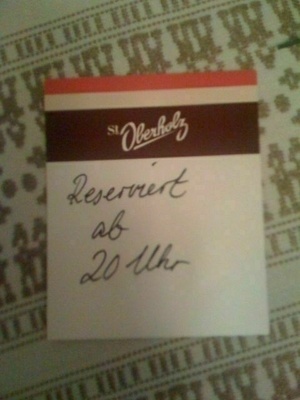 St. Oberholz
Reserviert
ab
20 Uhr